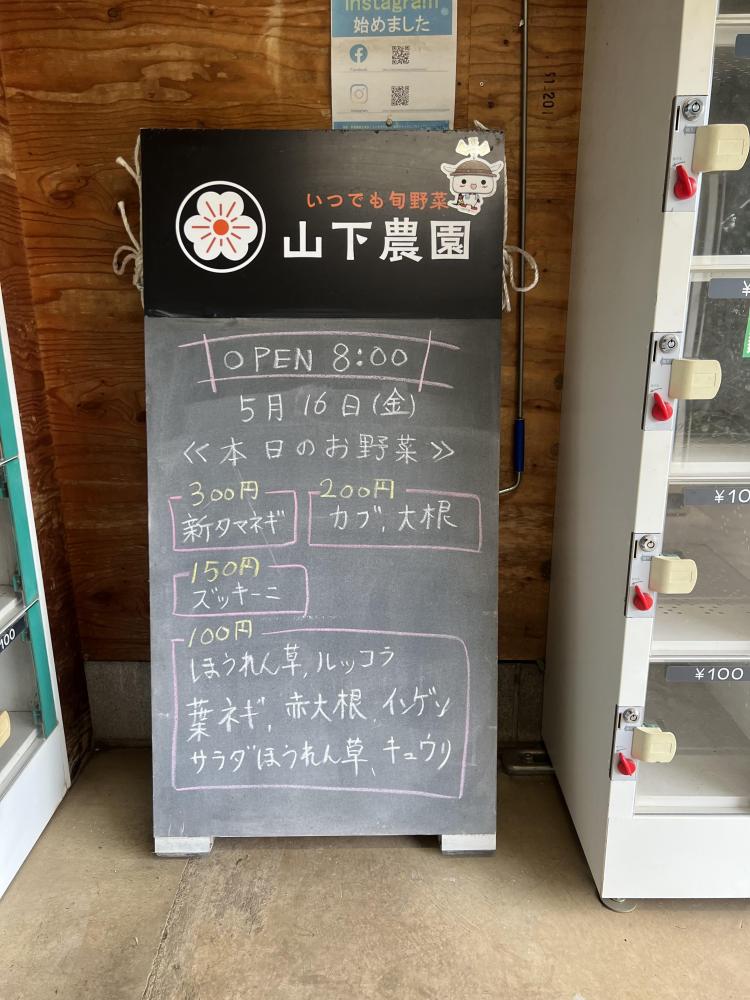 Instagram
始めました
Facebook
Instagram
いつでも旬野菜
山下農園
OPEN 8:00
5月16日(金)
≪本日のお野菜≫
300円
新タマネギ
200円
カブ, 大根
150円
ズッキーニ
100円
ほうれん草, ルッコラ
葉ネギ, 赤大根, インゲン
サラダほうれん草、キュウリ
¥
¥10
¥100
100